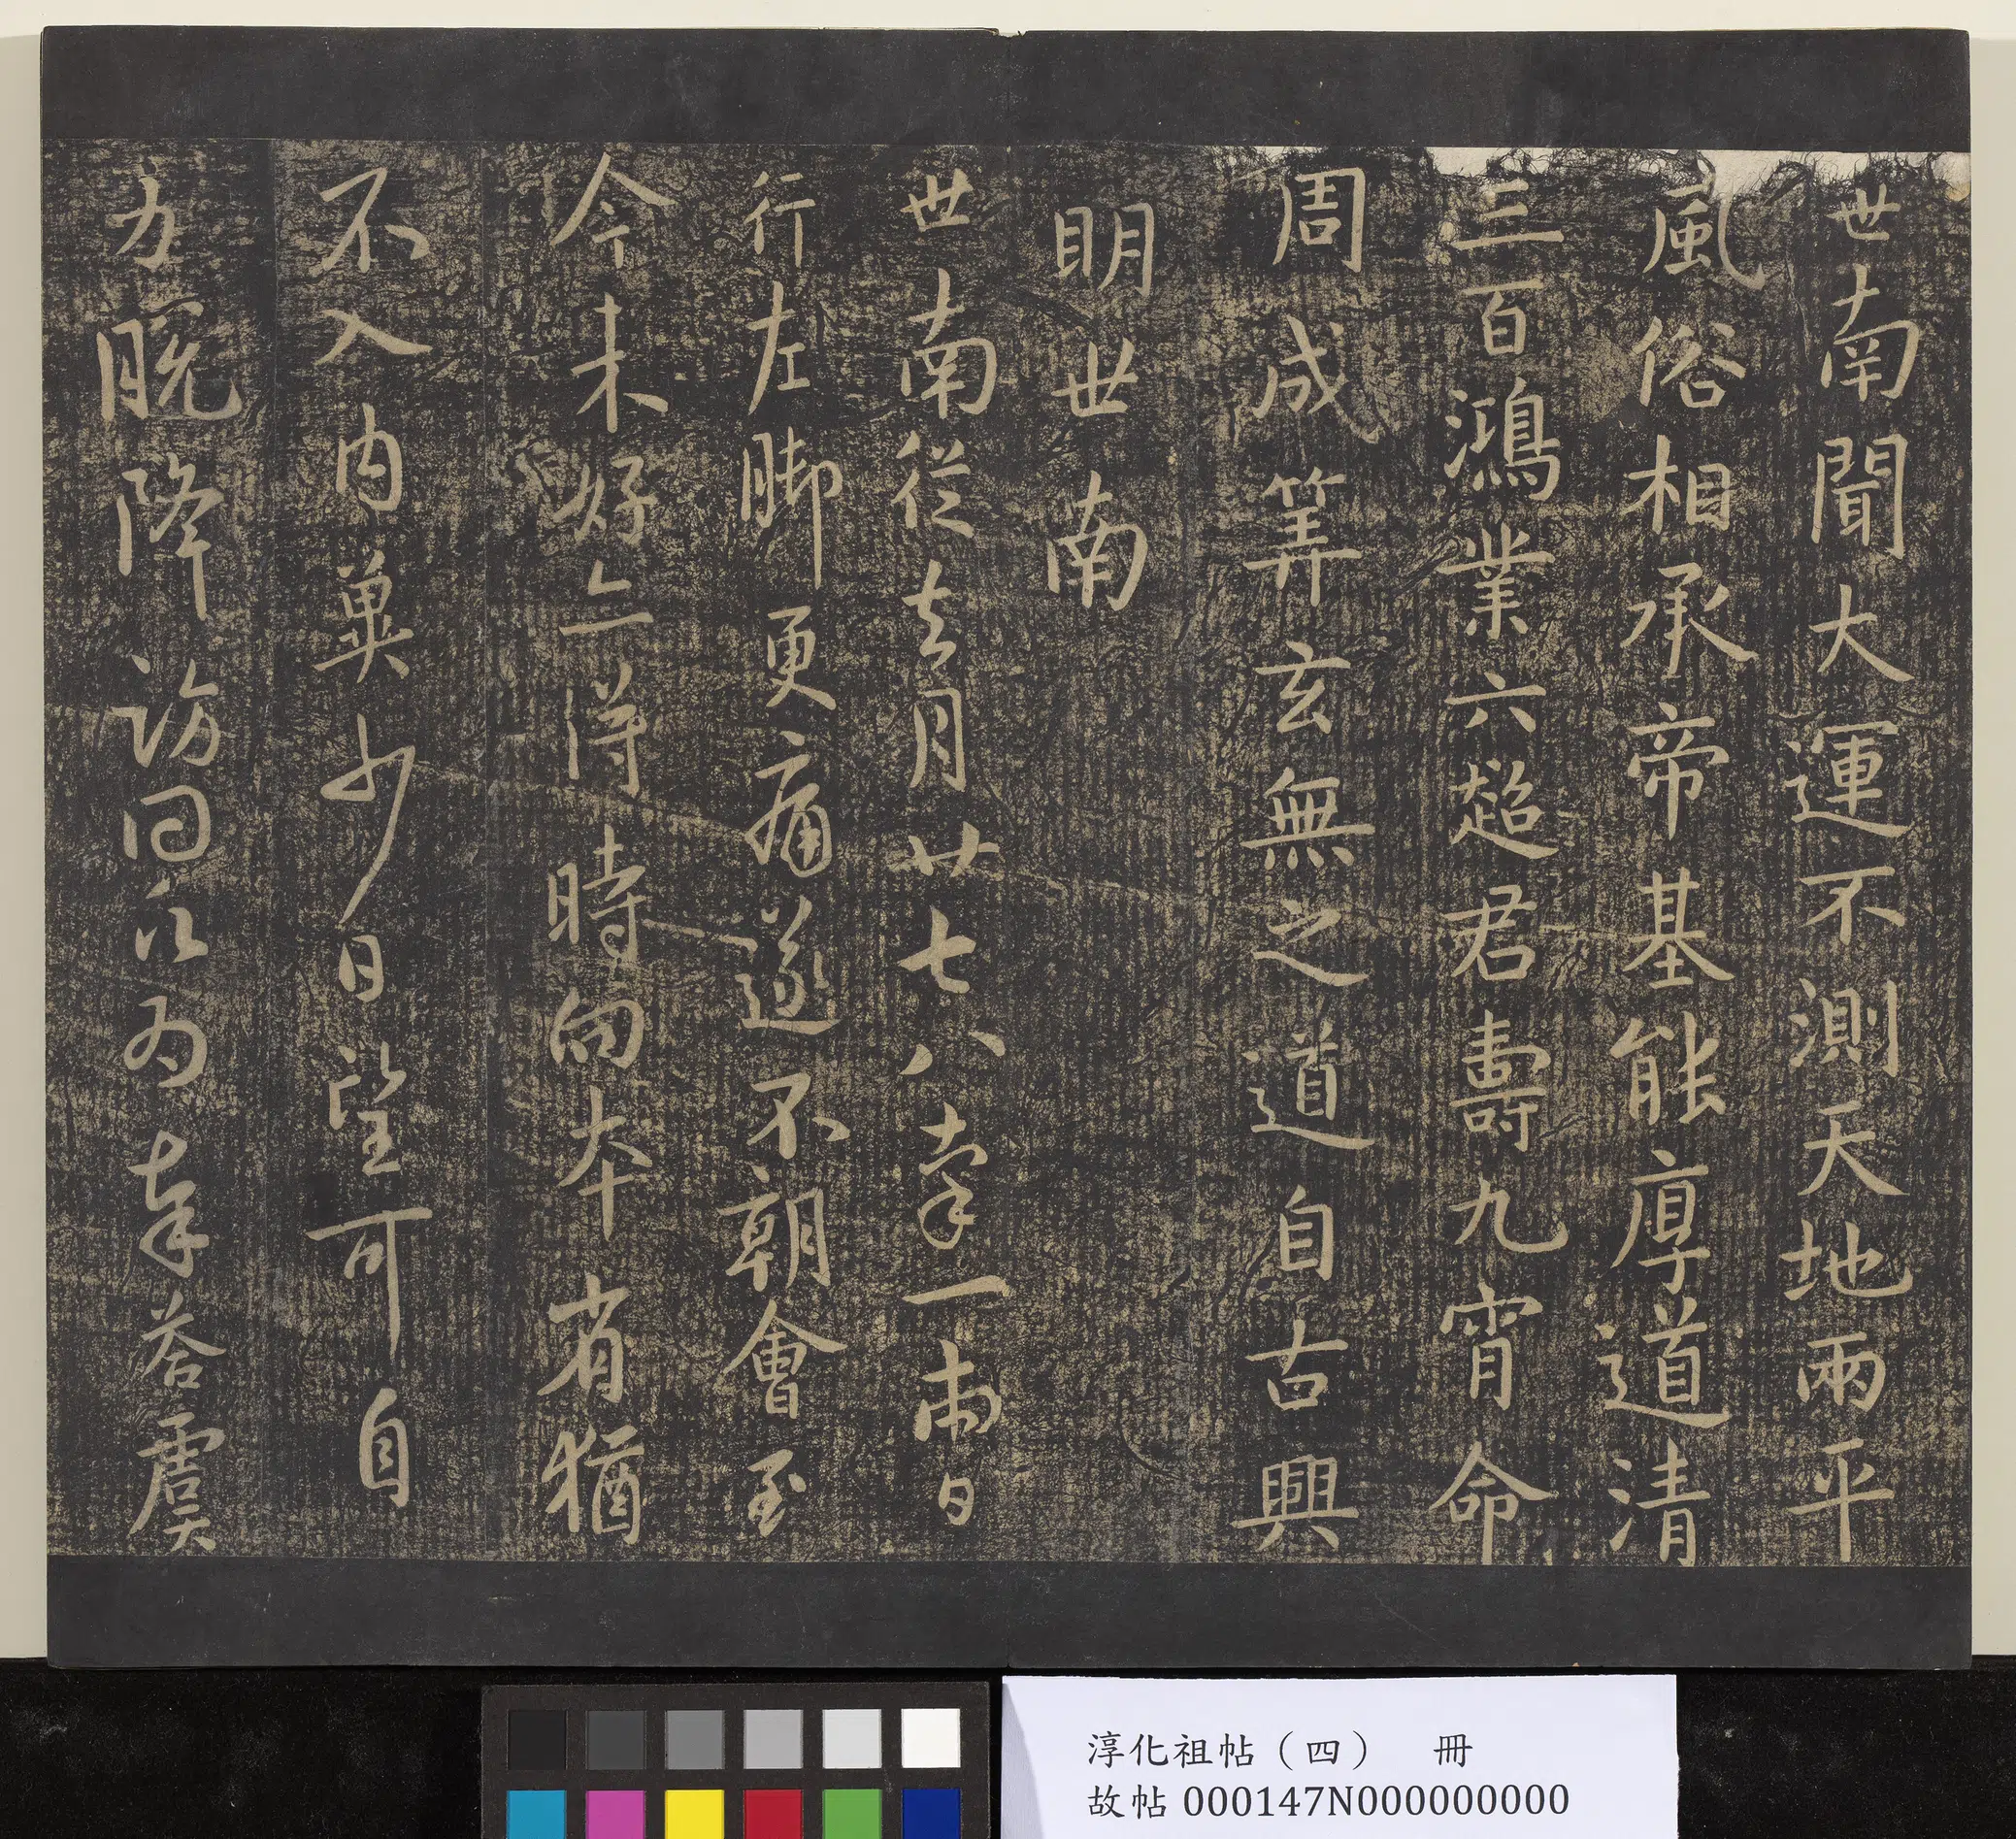 世南聞大運不測天地兩平
風俗相承帝基能厚道清
三百鴻業六超君壽九霄命
周成筭玄無之道自古興
明世南
世南從去月廿七八率一兩日
行左脚更痛遂不朝會至
今未好亦得時向本省猶
不入内冀少日望可自
力脱降訪問永為奉答虞
淳化祖帖（四） 冊
故帖 000147N000000000